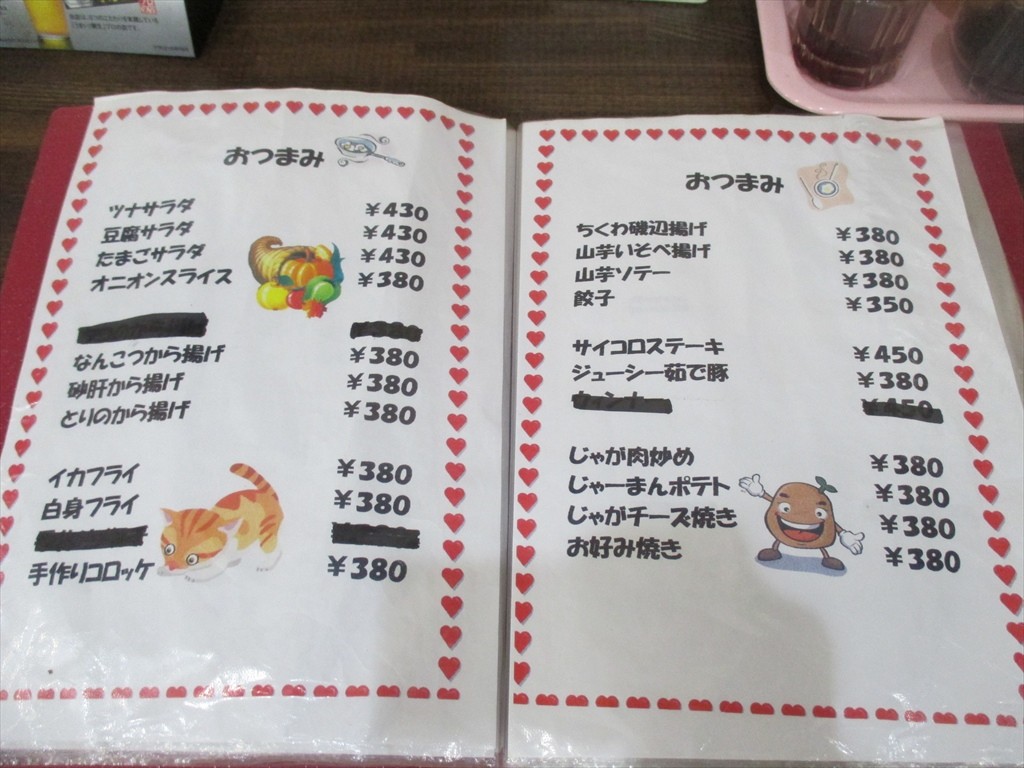 おつまみ
ツナサラダ ￥430
豆腐サラダ ￥430
たまごサラダ ￥430
オニオンスライス ￥380
なんこつから揚げ ￥380
砂肝から揚げ ￥380
とりのから揚げ ￥380
イカフライ ￥380
白身フライ ￥380
手作りコロッケ ￥380
おつまみ
ちくわ磯辺揚げ ￥380
山芋いそべ揚げ ￥380
山芋ソテー ￥380
餃子 ￥350
サイコロステーキ ￥450
ジューシー茹で豚 ￥380
ウィンナー ￥450
じゃが肉炒め ￥380
じゃーまんポテト ￥380
じゃがチーズ焼き ￥380
お好み焼き ￥380